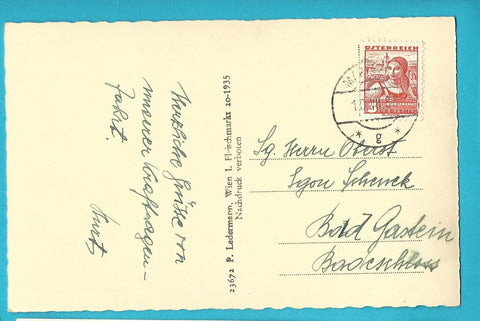 Herzliche Grüße von
unserer Kraftwagen-
fahrt.
Kurt
23672 P. Ledermann, Wien I. Fleischmarkt 20-1935
Nachdruck verboten
ÖSTERREICH
GROSCHEN
* g *
Sg Herrn Oberst
Schenek
Bad Gastein
Badeschloss